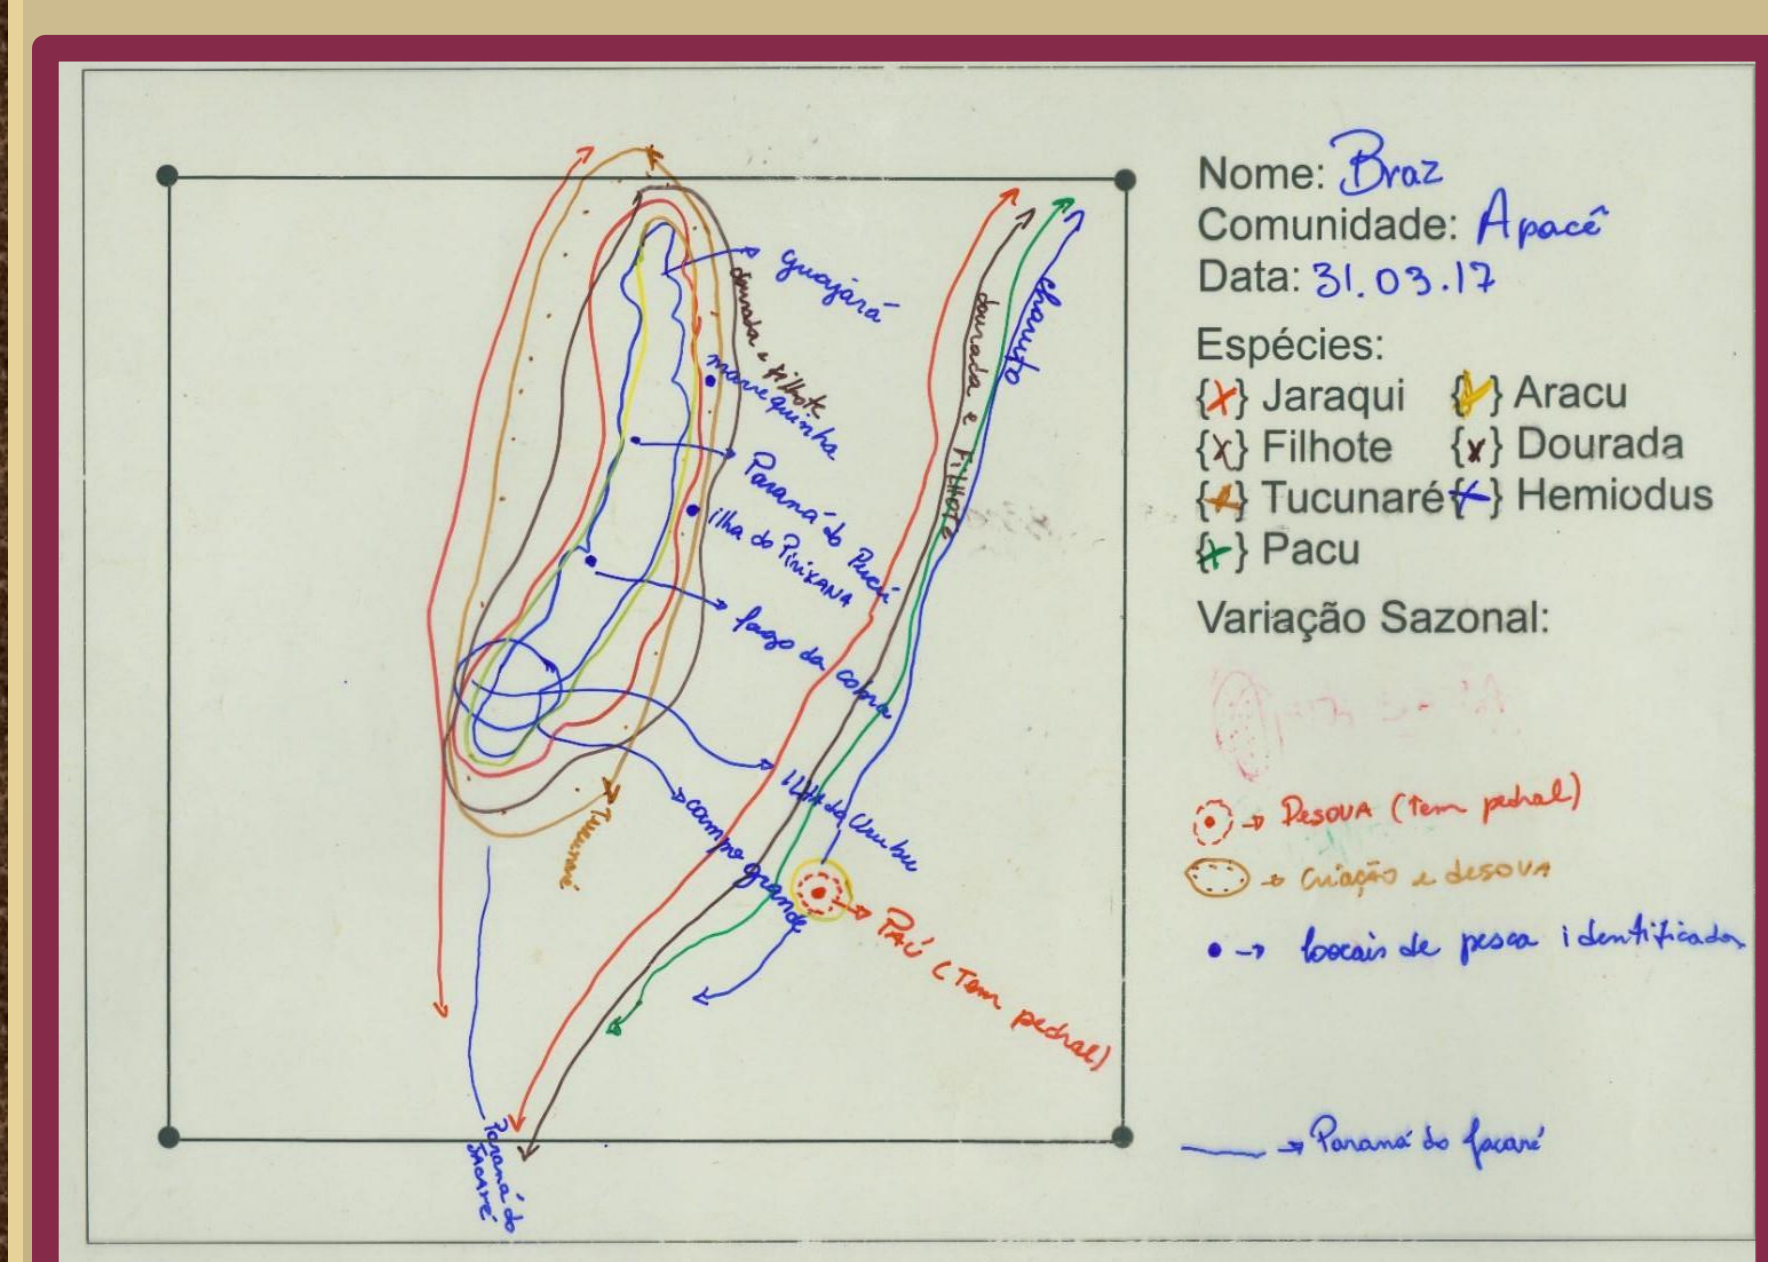 Nome: Braz
Comunidade: Apacê
Data: 31.03.17
Espécies:
{x} Jaraqui {x} Aracu
{x} Filhote {x} Dourada
{x} Tucunaré {x} Hemiodus
{x} Pacu
Variação Sazonal:
Desova (Tem pedral)
Criação e desova
locais de pesca identificados
Paraná do Jacaré
Guajará
dourada e filhote
marrequinha
Paraná do Pucú
ilha do Pirixana
lago da cobra
ILHA do Urubu
campo grande
Tucunaré
dourada e Filhote
charuto
PAÚ (Tem pedral)
Paraná do
Jacaré